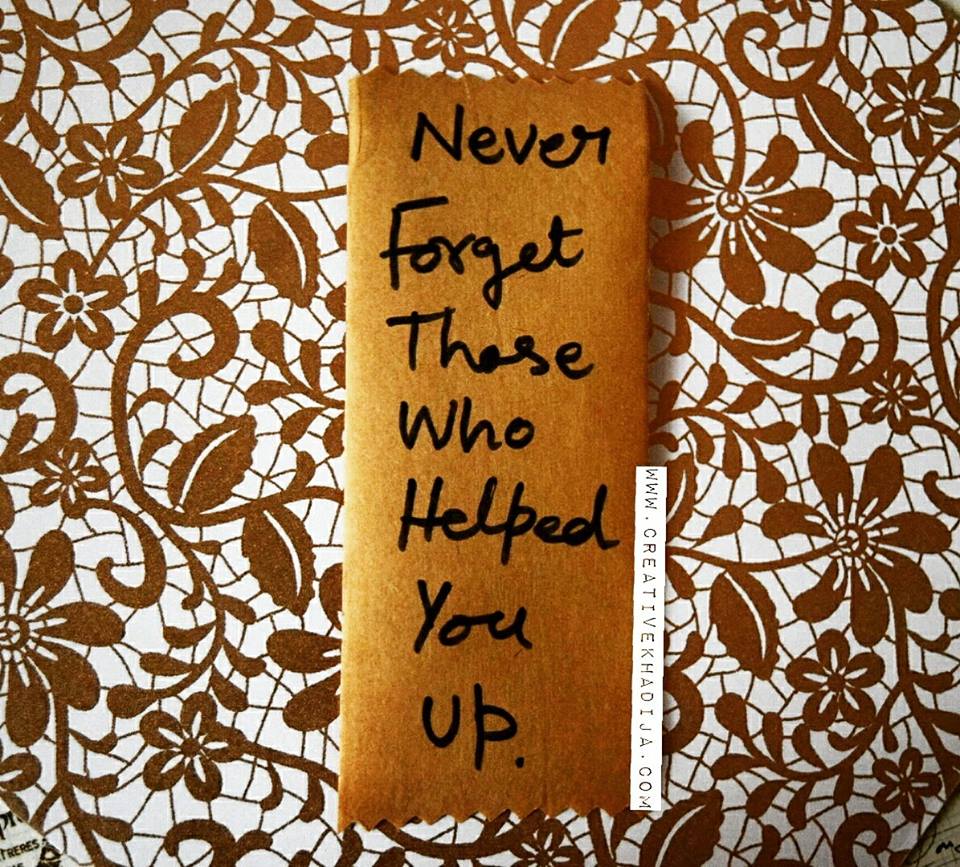 Never
Forget
Those
Who
Helped
You
Up.
WWW.CREATIVEKHADIJA.COM
TRERES